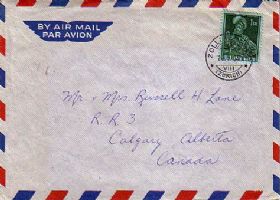 BY AIR MAIL
PAR AVION
Mr + Mrs Russell H Lane
R R 3
Calgary Alberta
Canada
ZOLL
VIII